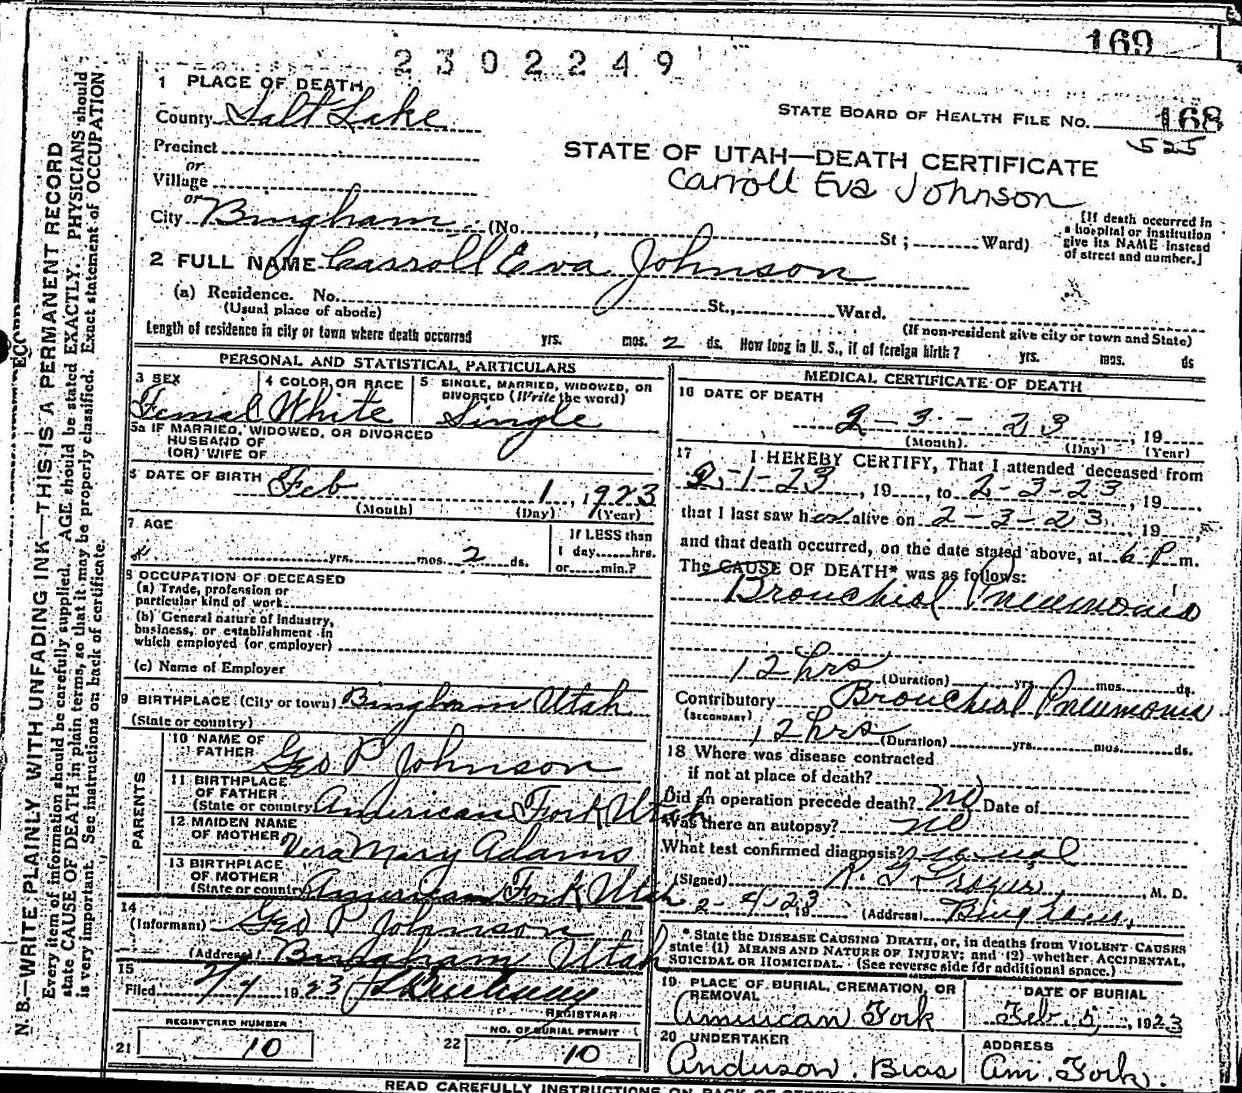 169
2302249
1 PLACE OF DEATH
County Salt Lake
STATE BOARD OF HEALTH FILE NO. 168
525
Precinct
or
Village
or
STATE OF UTAH—DEATH CERTIFICATE
Carroll Eva Johnson
City Bingham (No. , St; Ward)
[If death occurred in
a hospital or institution
give its NAME instead
of street and number.]
2 FULL NAME Carroll Eva Johnson
(a) Residence. No. St., Ward.
(Usual place of abode)
(If non-resident give city or town and State)
Length of residence in city or town where death occurred yrs. mos. 2 ds. How long in U. S., if of foreign birth? yrs. mos. ds
PERSONAL AND STATISTICAL PARTICULARS
3 SEX
Femal
4 COLOR OR RACE
White
5 SINGLE, MARRIED, WIDOWED, OR
DIVORCED (Write the word)
Single
5a IF MARRIED, WIDOWED, OR DIVORCED
HUSBAND OF
(OR) WIFE OF
6 DATE OF BIRTH Feb 1, 1923
(Month) (Day) (Year)
7 AGE
yrs. mos. 2 ds.
If LESS than
1 day hrs.
or min.?
8 OCCUPATION OF DECEASED
(a) Trade, profession or
particular kind of work
(b) General nature of industry,
business, or establishment in
which employed (or employer)
(c) Name of Employer
9 BIRTHPLACE (City or town) Bingham Utah
(State or country)
PARENTS
10 NAME OF
FATHER Geo P Johnson
11 BIRTHPLACE
OF FATHER
(State or country American Fork Utah
12 MAIDEN NAME
OF MOTHER Vera Mary Adams
13 BIRTHPLACE
OF MOTHER
(State or country American Fork Utah
14
(Informant) Geo P Johnson
(Address) Bingham Utah
15
Filed 2/4 1923
REGISTRAR
21 REGISTERED NUMBER
10
22 NO. OF BURIAL PERMIT
10
MEDICAL CERTIFICATE OF DEATH
16 DATE OF DEATH
2-3-23, 19
(Month) (Day) (Year)
17 I HEREBY CERTIFY, That I attended deceased from
2-1-23, 19, to 2-3-23, 19
that I last saw her alive on 2-3-23, 19,
and that death occurred, on the date stated above, at 6 P m.
The CAUSE OF DEATH* was as follows:
Brouchial Pneumonia
12 hrs (Duration) yrs. mos. ds.
Contributory Brouchial Pneumonia
(SECONDARY)
12 hrs (Duration) yrs. mos. ds.
18 Where was disease contracted
if not at place of death?
Did an operation precede death? no Date of
Was there an autopsy? no
What test confirmed diagnosis? usual
(Signed) M. D.
2-4-23, 19 (Address) Bingham,
*State the DISEASE CAUSING DEATH, or, in deaths from VIOLENT CAUSES
state (1) MEANS AND NATURE OF INJURY; and (2) whether ACCIDENTAL,
SUICIDAL OR HOMICIDAL. (See reverse side for additional space.)
19 PLACE OF BURIAL, CREMATION, OR
REMOVAL
American Fork
DATE OF BURIAL
Feb. 5, 1923
20 UNDERTAKER
Anderson Bros
ADDRESS
Am. Fork.
READ CAREFULLY INSTRUCTIONS ON BACK OF
N. B.—WRITE PLAINLY WITH UNFADING INK—THIS IS A PERMANENT RECORD
Every item of information should be carefully supplied. AGE should be stated EXACTLY. PHYSICIANS should
state CAUSE OF DEATH in plain terms, so that it may be properly classified. Exact statement of OCCUPATION
is very important. See instructions on back of certificate.